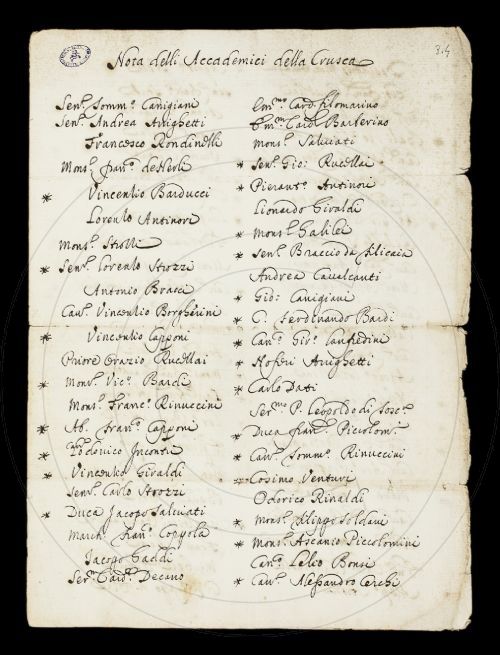 Nota delli Accademici della Crusca
3.4
Sen.^e Somm.^o Canigiani
Sen.^e Andrea Arrighetti
Francesco Rondinelli
Mons.^r Fran.^o de Nerli
* Vincentio Barducci
Lorenzo Antinori
Mons.^r Strozzi
* Sen.^e Lorenzo Strozzi
Antonio Bracci
Cau.^r Vincentio Borgherini
* Vincentio Capponi
Priore Orazio Rucellai
* Mons.^r Vic.^o Bardi
Mons.^r Franc.^o Rinuccini
* Ab. Fran.^o Capponi
* Lodovico Incontri
* Vincenzo Giraldi
Sen.^e Carlo Strozzi
* Duca Jacopo Salviati
March. Fran.^o Coppola
Jacopo Gaddi
Ser.^mo Card.^e Decano
Em.^mo Card. Filomarino
Em.^mo Card. Barberino
Mons.^r Salviati
* Sen.^e Gio: Rucellai
* Pierant.^o Antinori
Lionardo Giraldi
* Mons.^r Galilei
* Sen.^e Braccio da Filicaia
Andrea Cavalcanti
* Gio: Canigiani
* C. Ferdinando Bardi
* Can.^o Gir.^o Lanfredini
* Noferi Arrighetti
* Carlo Dati
Ser.^mo P. Leopoldo di Tosc.^a
* Duca Fran.^o Piccolom.^i
* Cau.^r Somm.^o Rinuccini
* Cosimo Venturi
Odorico Rinaldi
* Mons.^r Filippo Soldani
* Mons.^r Ascanio Piccolomini
Can.^o Lelio Bonsi
* Cau.^r Alessandro Cerchi